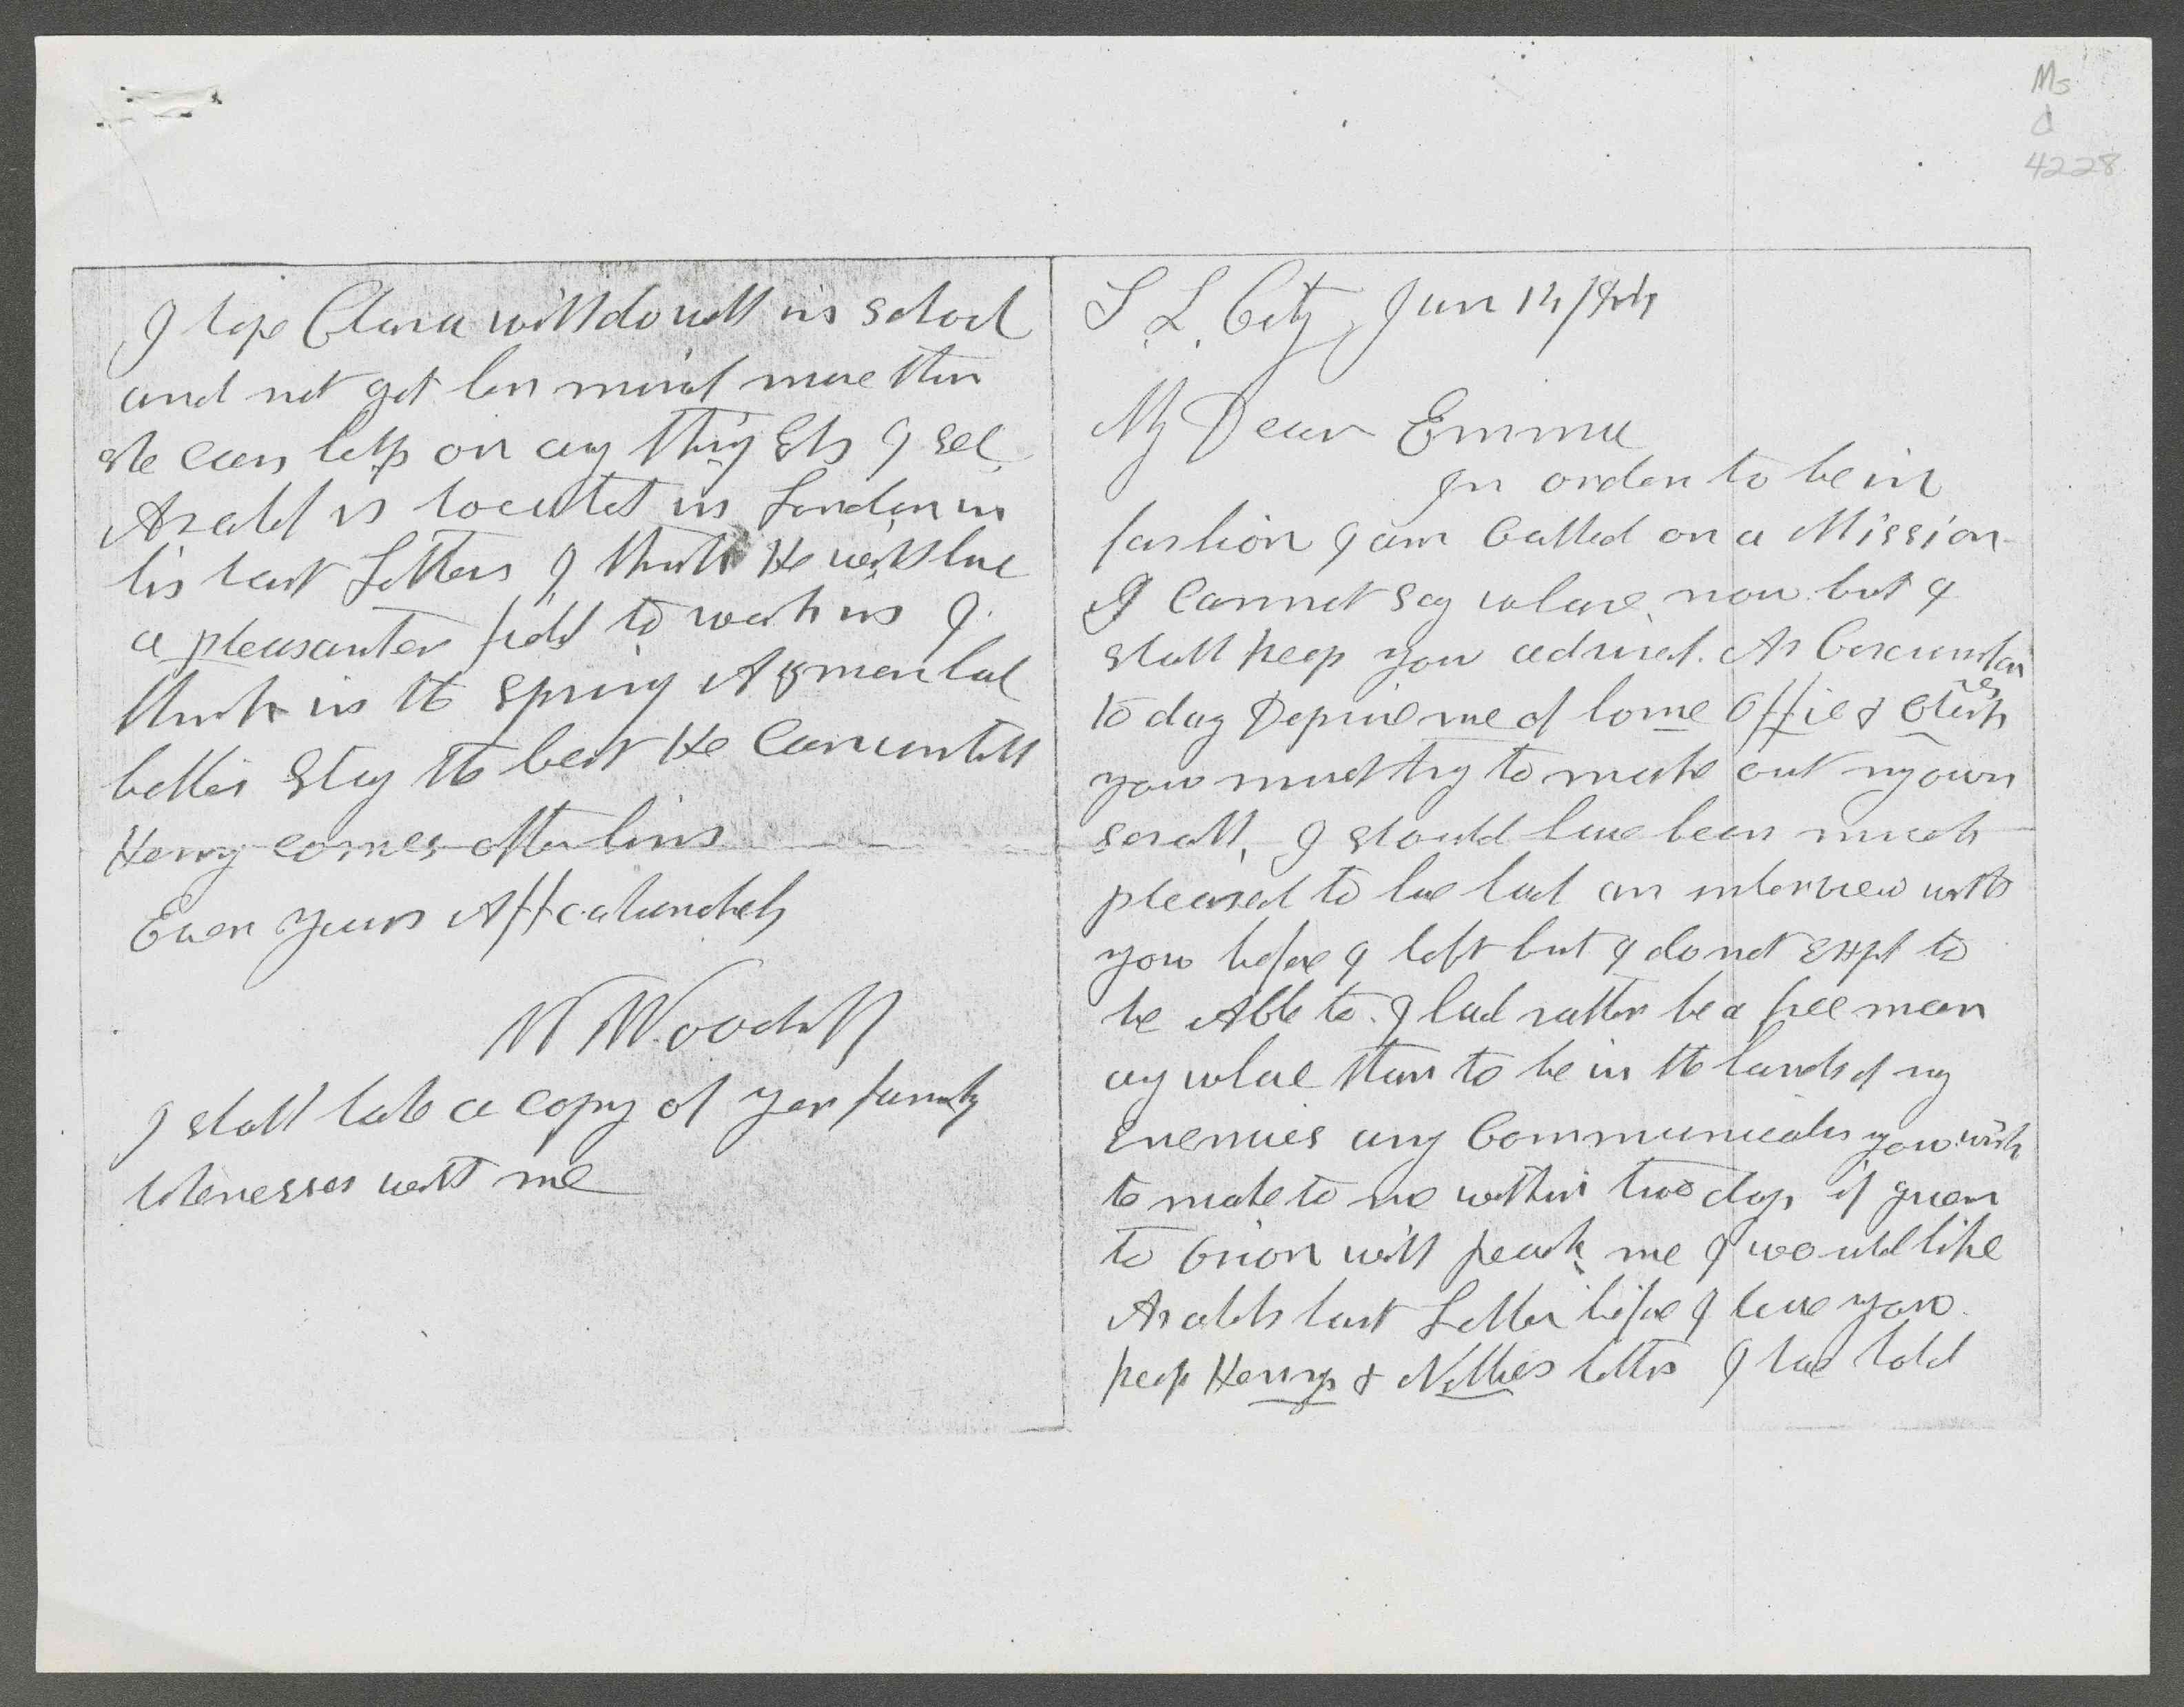 Ms
d
4228
S. L. City, Jan
My Dear Emma
In order to be in
fashion I am Called on a Mission
I Cannot say whare now. but I
shall keep you advised. As Circumstan
ces
to day Deprive me of home Office & Clerk
you must try to make out my own
scrall, I should have been much
pleased to have had an interview with
you before I left but I do not Expt to
be Able to. I had rather be a free man
any whare than to be in the hands of my
Enemies any Communication you wish
to make to me within two days if given
to Orion will reach me I would like
Asahels last Letter before I leave you
keep Henrys & Nellies letters I have told
I hope Clara will do well in School
and not get her mind more than
she can help on any thing Els I see
Asahel is located in London in
his last Letters I think He will have
a pleasanter field to work in I
think in the spring Azmon had
better Stay the best He Can untill
Henry comes after him
Ever yours Affectionately
W Woodruff
I shall take a copy of your family
likenesses with me